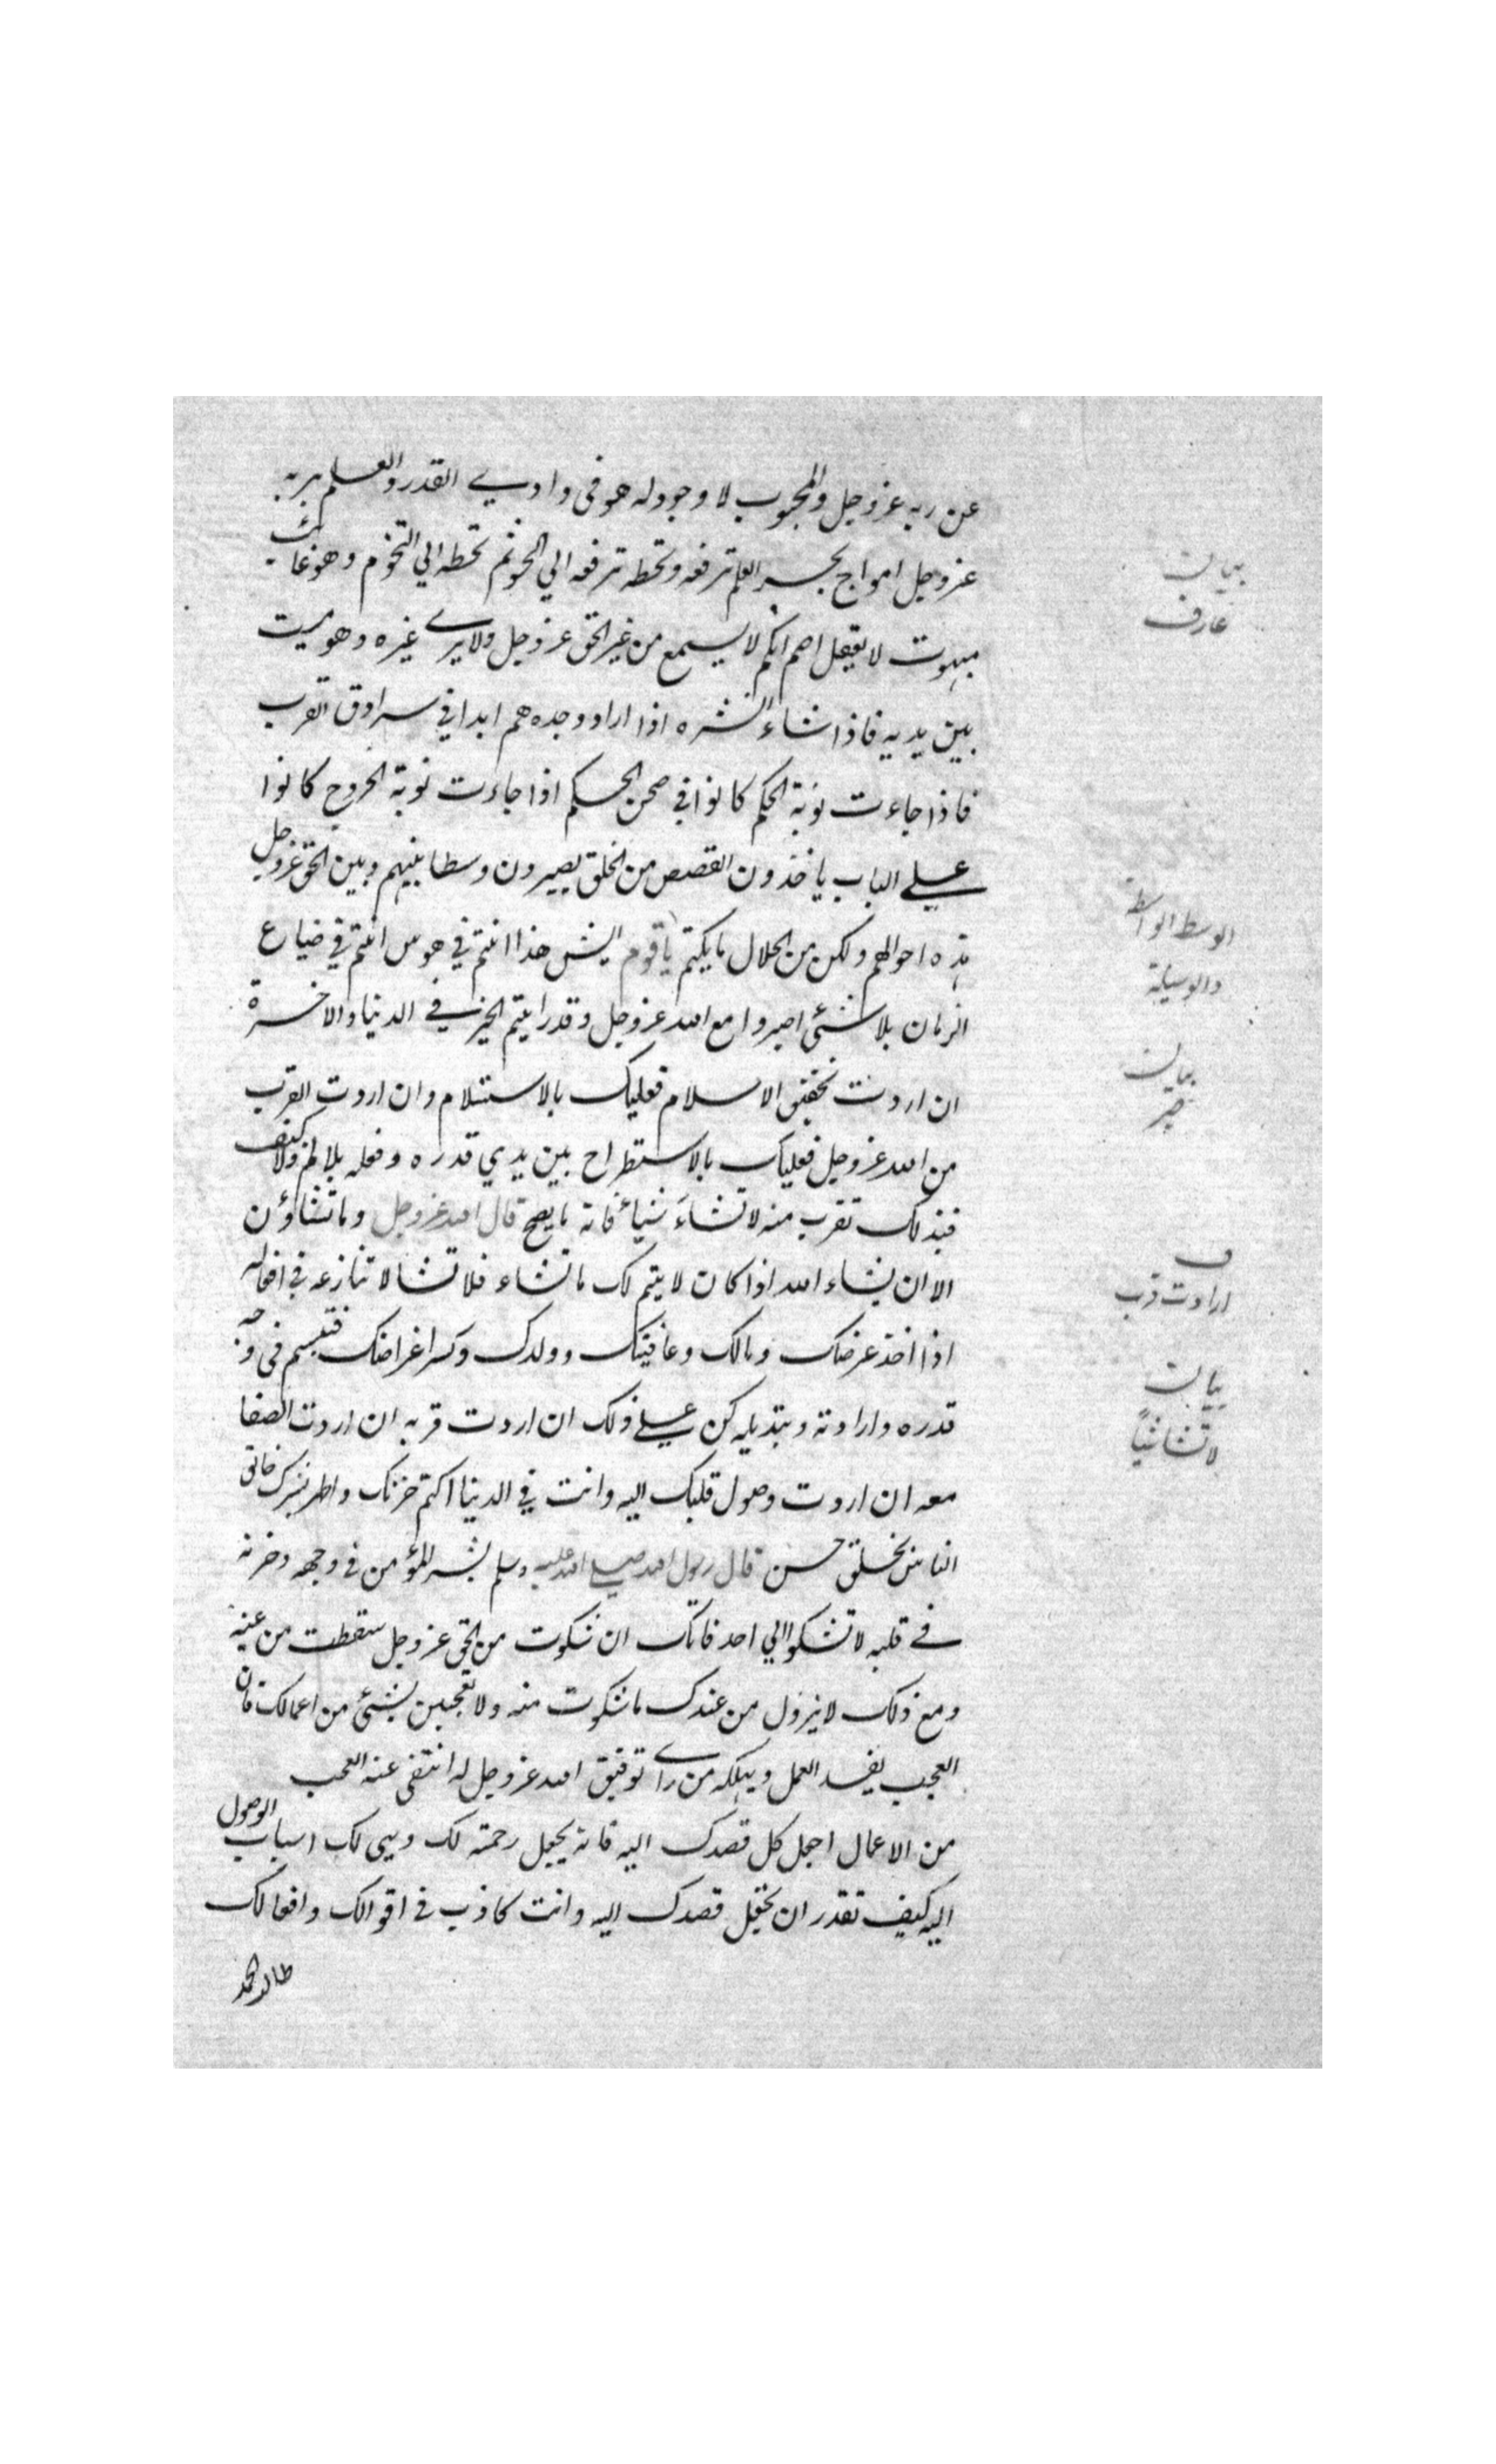 عن ربه عز وجل والمحبوب لا وجود له هو في وادي القدر والعلم بربه
عز وجل امواج بحر العلم ترفعه وتحطه ترفعه الي الجو ثم تحطه الي التخوم وهو غائب
مبهوت لا يعقل اصم ابكم لا يسمع من غير الحق عز وجل ولا يرى غيره وهو ميت
بين يديه فاذا شاء انشره اذا اراد وجده هم ابدا في سرادق القرب
فاذا جاءت نوبة الحكم كانوا في صحن الحكم اذا جاءت نوبة الخروج كانوا
علي الباب ياخذون القصص من الخلق يصيرون وسطا بينهم وبين الحق عز وجل
هذه احوالهم ولكن من الحلال ما يكتم يا قوم ايش هذا انتم في هوس انتم في ضياع
الزمان بلا شئى اصبروا مع الله عز وجل وقد رايتم الخير في الدنيا والاخرة
ان اردت تحقيق الاسلام فعليك بالاستسلام وان اردت القرب
من الله عز وجل فعليك بالاستطراح بين يدي قدره وفعله بلا لم ولا كيف
فبذلك تقرب منه لا تشاء شيأ فانه ما يصح قال الله عز وجل وما تشاؤن
الا ان يشاء الله اذا كان لا يتم لك ما تشاء فلا تشا لا تنازعه في افعاله
اذا اخذ عرضك ومالك وعافيتك وولدك وكسر اغراضك فتبسم في وجه
قدره وارادته وتبديله كن علي ذلك ان اردت قربه ان اردت الصفا
معه ان اردت وصول قلبك اليه وانت في الدنيا اكتم حزنك واظهر بشرك خالق
الناس بخلق حسن قال رسول الله صلي الله عليه وسلم بشر المؤمن في وجهه وحزنه
في قلبه لا تشكوا الي احد فانك ان شكوت من الحق عز وجل سقطت من عينه
ومع ذلك لا يزول من عندك ما شكوت منه ولا تعجبن بشئى من اعمالك فان
العجب يفسد العمل ويهلكه من راى توفيق الله عز وجل له انتفى عنه العجب
من الاعمال اجعل كل قصدك اليه فانه يجعل رحمته لك ويهي لك اسباب الوصول
اليه كيف تقدر ان تجعل قصدك اليه وانت كاذب في اقوالك وافعالك
بيان
عارف
الوسط الواسطة
والوسيلة
بيان
صبر
ف
ارادت قرب
بيان
لا تشا شيأ